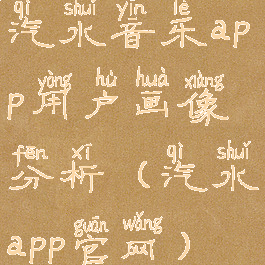 qì shuǐ yīn lè
汽水音乐ap
yòng hù huà xiàng
p用户画像
fēn xī qì shuǐ
分析（汽水
guān wǎng
app官网）